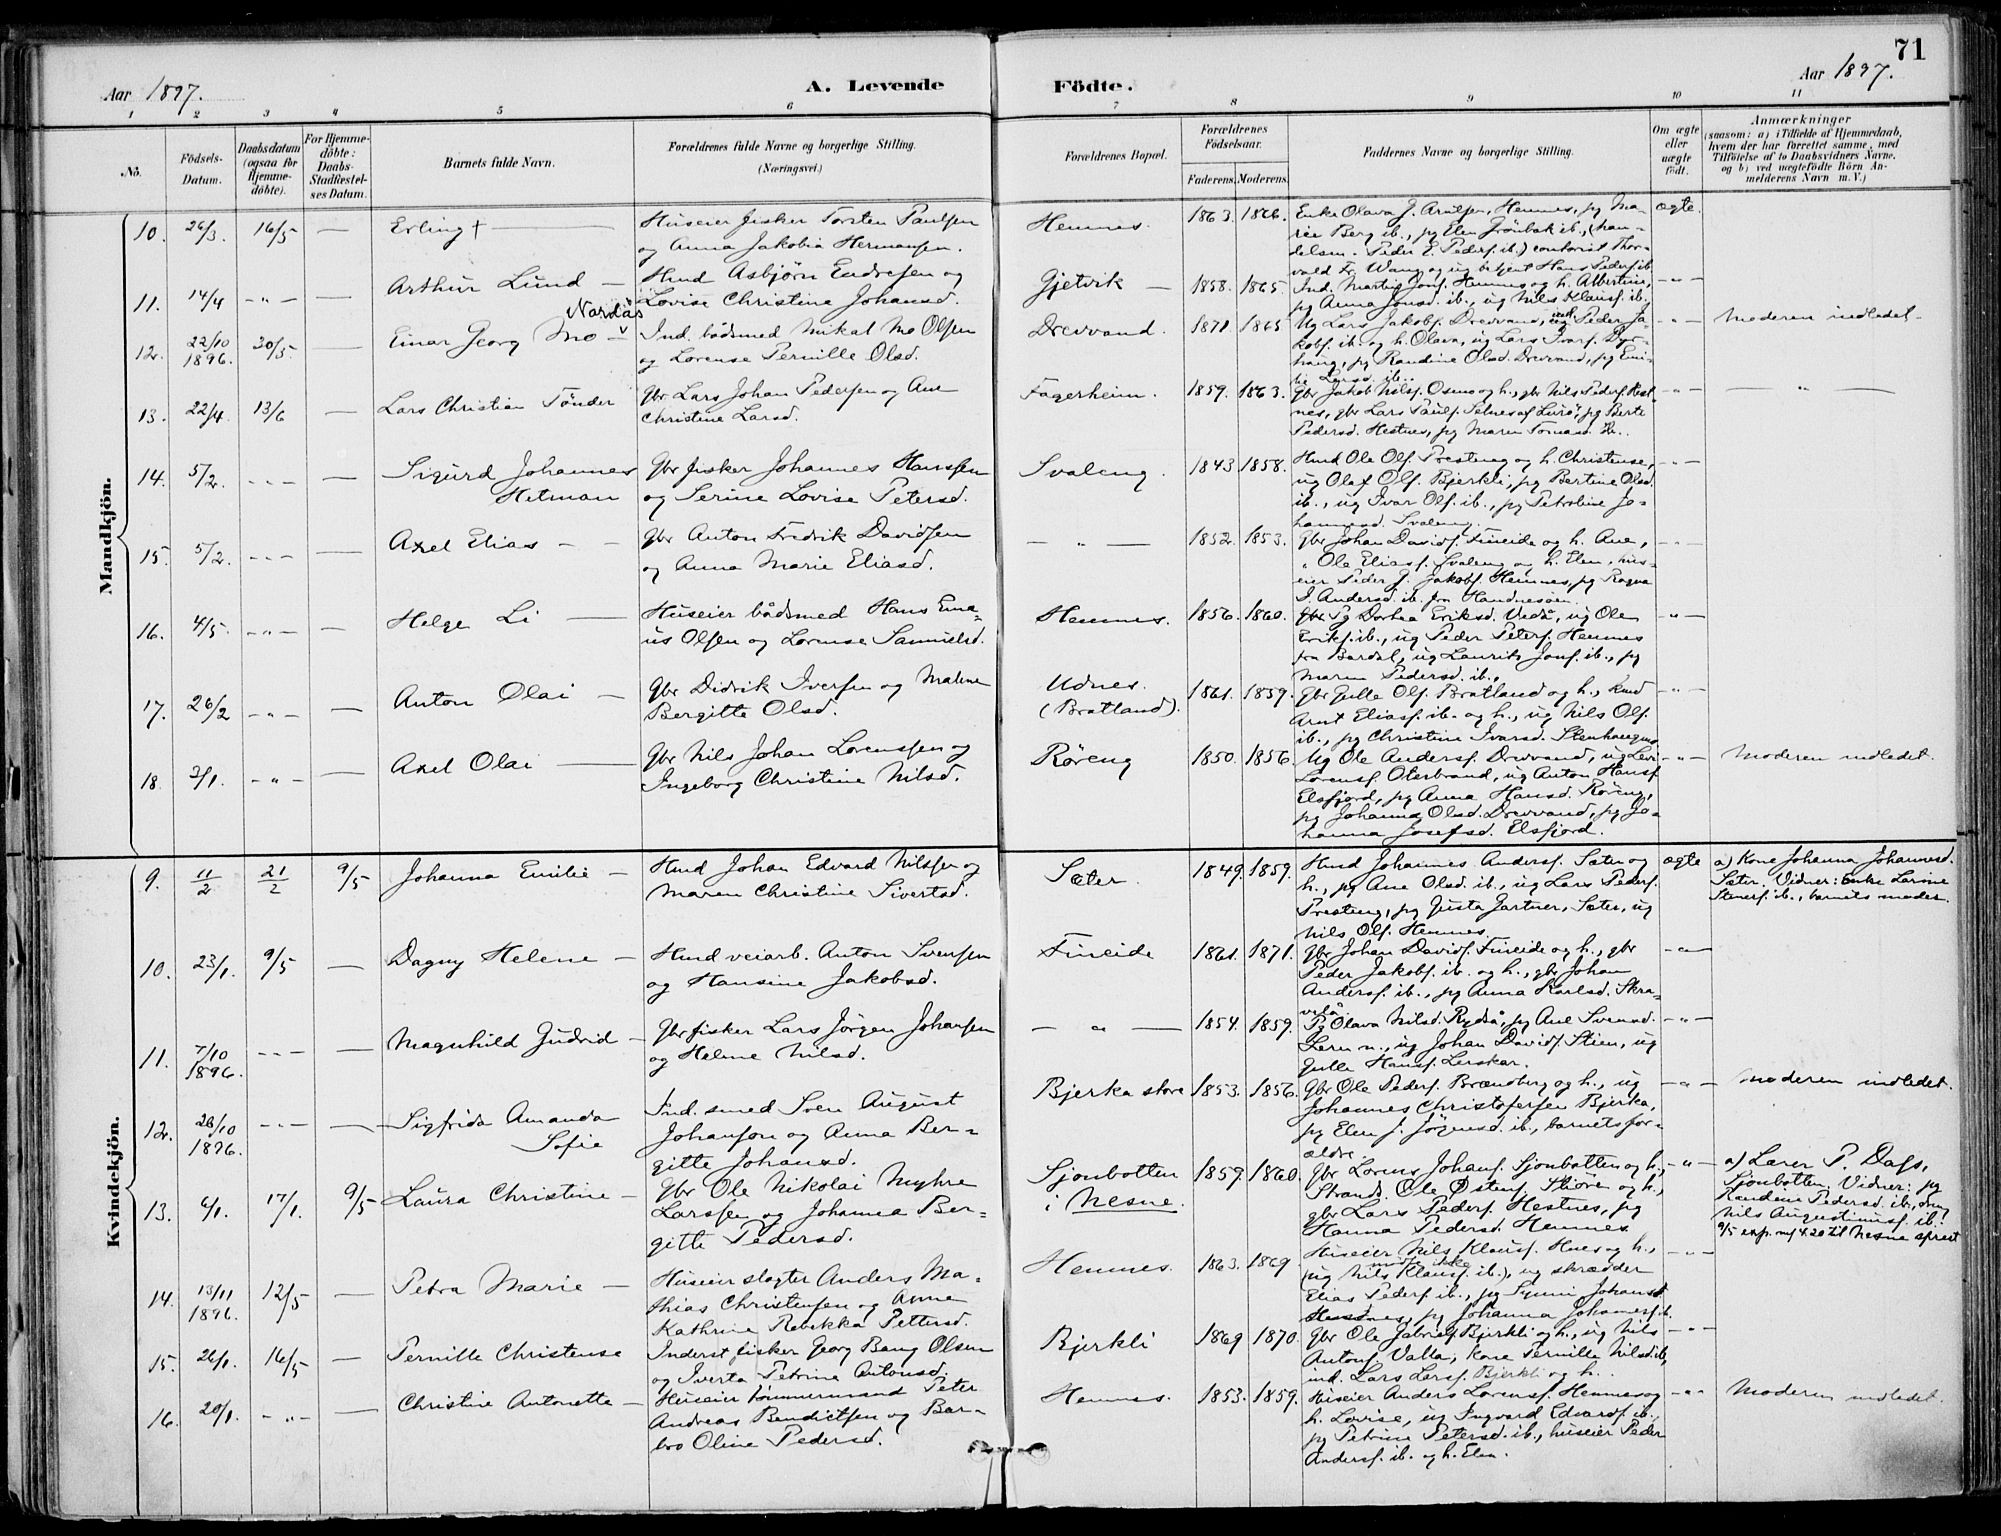 71
Aar 1897.
A. Levende Födte.
Aar 1897.
1 2 3 4 5 6 7 8 9 10 11
No.
Födsels-Datum.
Daabsdatum (ogsaa for Hjemmedöbte).
For Hjemmedöbte: Daabs-Stadfæstelses Datum.
Barnets fulde Navn.
Forældrenes fulde Navne og borgerlige Stilling. (Næringsvei.)
Forældrenes Bopæl.
Forældrenes Födselsaar.
Faderens. Moderens.
Faddernes Navne og borgerlige Stilling.
Om ægte eller uægte födt.
Anmærkninger
(saasom: a) i Tilfælde af Hjemmedaab, hvem der har forrettet samme, med Tilföielse af to Daabsvidners Navne, og b) ved uægtefödte Börn Anmelderens Navn m. V.)
Mandkjön.
10. 26/3. 16/5 — Erling † —
Huseier fisker Torsten Paulsen
og Anna Jakobia Hermansen.
Hemnes. 1863. 1866.
Enke Olava J. Arntsen, Hemnes, pg Ma-
rie Berg ib., pg Elen Grönbæk ib., (han-
delsm. Peder E. Peders. ib.) contorist Thor-
vald Fr. Wang og ug betjent Hans Peders. ib.
ægte.
11. 14/4 -"- — Arthur Lund —
Kmd Asbjörn Endresen og
Lovise Christine Johansd.
Gjetvik — 1858. 1865.
Ind. Martin Jons. Hemnes og h. Albertine,
pg Anna Jonsd. ib., ug Nils Klausf. ib.
-"-
12. 22/10 1896. 30/5. — Einar Georg Mo —
Nordås
Ind. bådsmed Mikal Mo Olsen
og Lorense Pernille Olsd.
Drevvand. 1871. 1865
Ug Lars Jakobf. Drevvand, ug Peder Ja-
kobf. ib. og h. Olava, ug Lars Ivarf. Dyr-
haug, pg Randine Olsd. Drevvand, pg Emi-
lie Larsd. ib.
-"- Moderen indledet.
13. 22/4. 13/6 — Lars Christian Tönder
Gbr Lars Johan Pedersen og Ane
Christine Larsd.
Fagerheim. 1859. 1863.
Gbr Jakob Nilsf. Osmo og h., gbr Nils Pedersf. Hest-
nes, gbr Lars Paulf. Selnes af Lurö, pg Berte
Pedersd. Hestnes, pg Maren Tomasd. ib.
-"- — " —
14. 5/2. -"- — Sigurd Johannes
Hetman
Gbr fisker Johannes Hanssen
og Serine Lovise Petersd.
Svaleng. 1843 1858.
Kmd Ole Olf. Presteng og h. Christense,
ug Olaf Olf. Bjerkli, pg Bertine Olsd.
ib., ug Ivar Olf. ib., pg Petroline Jo-
hannesd. Svaleng.
-"-
15. 5/2. -"- — Axel Elias —
Gbr Anton Fredrik Davidsen
og Anna Marie Eliasd.
— " — 1852. 1853.
Gbr Johan Davidf. Fineide og h. Ane,
" Ole Eliasf. Svaleng og h. Elen, hus-
eier Peder J. Jakobf. Hemnes, pg Ragna
J. Andersd. ib. fra Handnesöen.
-"-
16. 4/5. -"- — Helge Li —
Huseier bådsmed Hans Ema-
us Olsen og Lorense Samuelsd.
Hemnes. 1856. 1860.
Pg Dorthea Eriksd. Vedå, ug Ole
Erikf. ib., ug Peder Peterf. Hemnes
fra Bardal, ug Laurits Jonf. ib., pg
Maren Pedersd. ib.,
-"-
17. 26/2 -"- — Anton Olai —
Gbr Didrik Iversen og Malene
Bergitte Olsd.
Udnes.
(Bratland). 1861. 1859.
Gbr Julle Olf. Bratland og h., kmd
Arnt Eliasf. ib. og h., ug Nils Olf.
ib., pg Christine Ivarsd. Stenhaugmo
-"-
18. 2/1. -"- — Axel Olai —
Gbr Nils Johan Lorenssen og
Ingeborg Christine Nilsd.
Röreng 1850. 1856.
Ug Ole Andersf. Drevvand, ug Levi
Lorensf. Oterbrand, ug Anton Hansf.
Elsfjord, pg Anna Hansd. Röreng,
pg Johanna Olsd. Drevvand, pg Jo-
hanna Josefsd. Elsfjord.
-"- Moderen indledet.
Kvindekjön.
9. 11/2 21/2 9/5 Johanna Emilie —
Kmd Johan Edvard Nilssen og
Maren Christine Sivertsd.
Sæter. 1849. 1859.
Kmd Johannes Andersf. Sæter og
h., pg Ane Olsd. ib., ug Lars Pedersf.
Presteng, pg Justa Gartner, Sæter, ug
Nils Olf. Hemnes.
ægte a) Kone Johanna Johannesd.
Sæter. Vidner: Enke Larine
Stenersf. ib., barnets moder.
10. 23/1. 9/5 — Dagny Helene —
Kmd veiarb. Anton Svensen
og Hansine Jakobsd.
Fineide 1861. 1871.
Gbr Johan Davidf. Fineide og h., gbr
Peder Jakobf. ib. og h., gbr Johan
Andersf. ib., pg Anna Karlsd. Skra-
velå.
-"-
11. 7/10 1896. -"- — Magnhild Gudrid —
Gbr fisker Lars Jörgen Johansen
og Helene Nilsd.
— " — 1854. 1859.
Pg Olava Nilsd. Rydså, pg Ane Svensd.
Leren n., ug Johan Davidf. Stien, ug
Julle Hansf. Lerskar.
-"-
12. 28/10 1896. -"- — Sigfrida Amanda
Sofie
Ind. smed Sven August
Johanson og Anna Ber-
gitte Johansd.
Bjerka store 1853. 1856.
Gbr Ole Pedersf. Brændberg og h., ug
Johannes Christofersen Bjerka,
pg Elen J. Jörgensd. ib., barnets for-
ældre.
-"- Moderen indledet.
13. 6/1. 17/1. 9/5 Laura Christine —
Gbr Ole Nikolai Myhre
Larssen og Johanna Ber-
gitte Pedersd.
Sjonbotten
i Nesne. 1859. 1860.
Gbr Lorens Johanf. Sjonbotten og h.,
Strands. Ole Östenf. Stiören og h.,
gbr Lars Pedersf. Hestnes, pg
Hanna Pedersd. Hemnes
-"- a) Lærer P. Dass,
Sjonbotten. Vidner: pg
Randine Pedersd. ib., dreng
Nils Augustinusf. ib.
9/5 exp. m/ 4.20 til Nesne sprest
14. 13/11 1896. 12/5 — Petra Marie —
Huseier slagter Anders Ma-
thias Christensen og Anne
Kathrine Rebekka Pettersd.
Hemnes. 1863. 1869.
Huseier Nils Klausf. Hnes og h.,
(ug Nils Klausf. ib.), ug skrædder
Elias Pedersf. ib., pg Synni Johansd.
Hemnes, pg Johanna Johannesf. ib.
-"-
15. 26/1. 16/5 — Pernille Christense
Inderst fisker Georg Bang Olsen
og Iverta Petrine Antonsd.
Bjerkli 1869 1870.
Gbr Ole Gabrielf. Bjerkli og h., ug Nils
Antonf. Valla, kone Pernille Nilsd. ib.,
ind. Lars Larsf. Bjerkli og h.
-"-
16. 20/1. -"- — Christine Antonette —
Huseier tömmermand Peter
Andreas Bendictsen og Bar-
bro Oline Pedersd.
Hemnes. 1853. 1859.
Huseier Anders Lorensf. Hemnes og
h. Lovise, ug Ingvard Edvardf. ib.,
pg Petrine Petersd. ib., huseier Peder
Andersf. ib. og h. Elen.
-"- Moderen indledet.